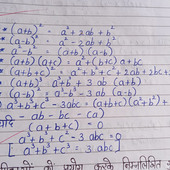 * (a+b)² = a²+2ab+b²
* (a-b)² = a²-2ab+b²
* a²-b² = (a+b) (a-b)
* (a+b) (a+c) = a²+(b+c) a+bc
* (a+b+c)² = a²+b²+c²+2ab+2bc+
(a+b)³ = a³+b³+3ab (a+b)
(a-b)³ = a³-b³-3ab (a-b)
a³+b³+c³-3abc = (a+b+c) (a²+b²+
यदि -ab -bc -ca)
(a+b+c) = 0
a³+b³+c³-3abc = 0
[a³+b³+c³ = 3abc]
का प्रयोग करके निम्नलिखित